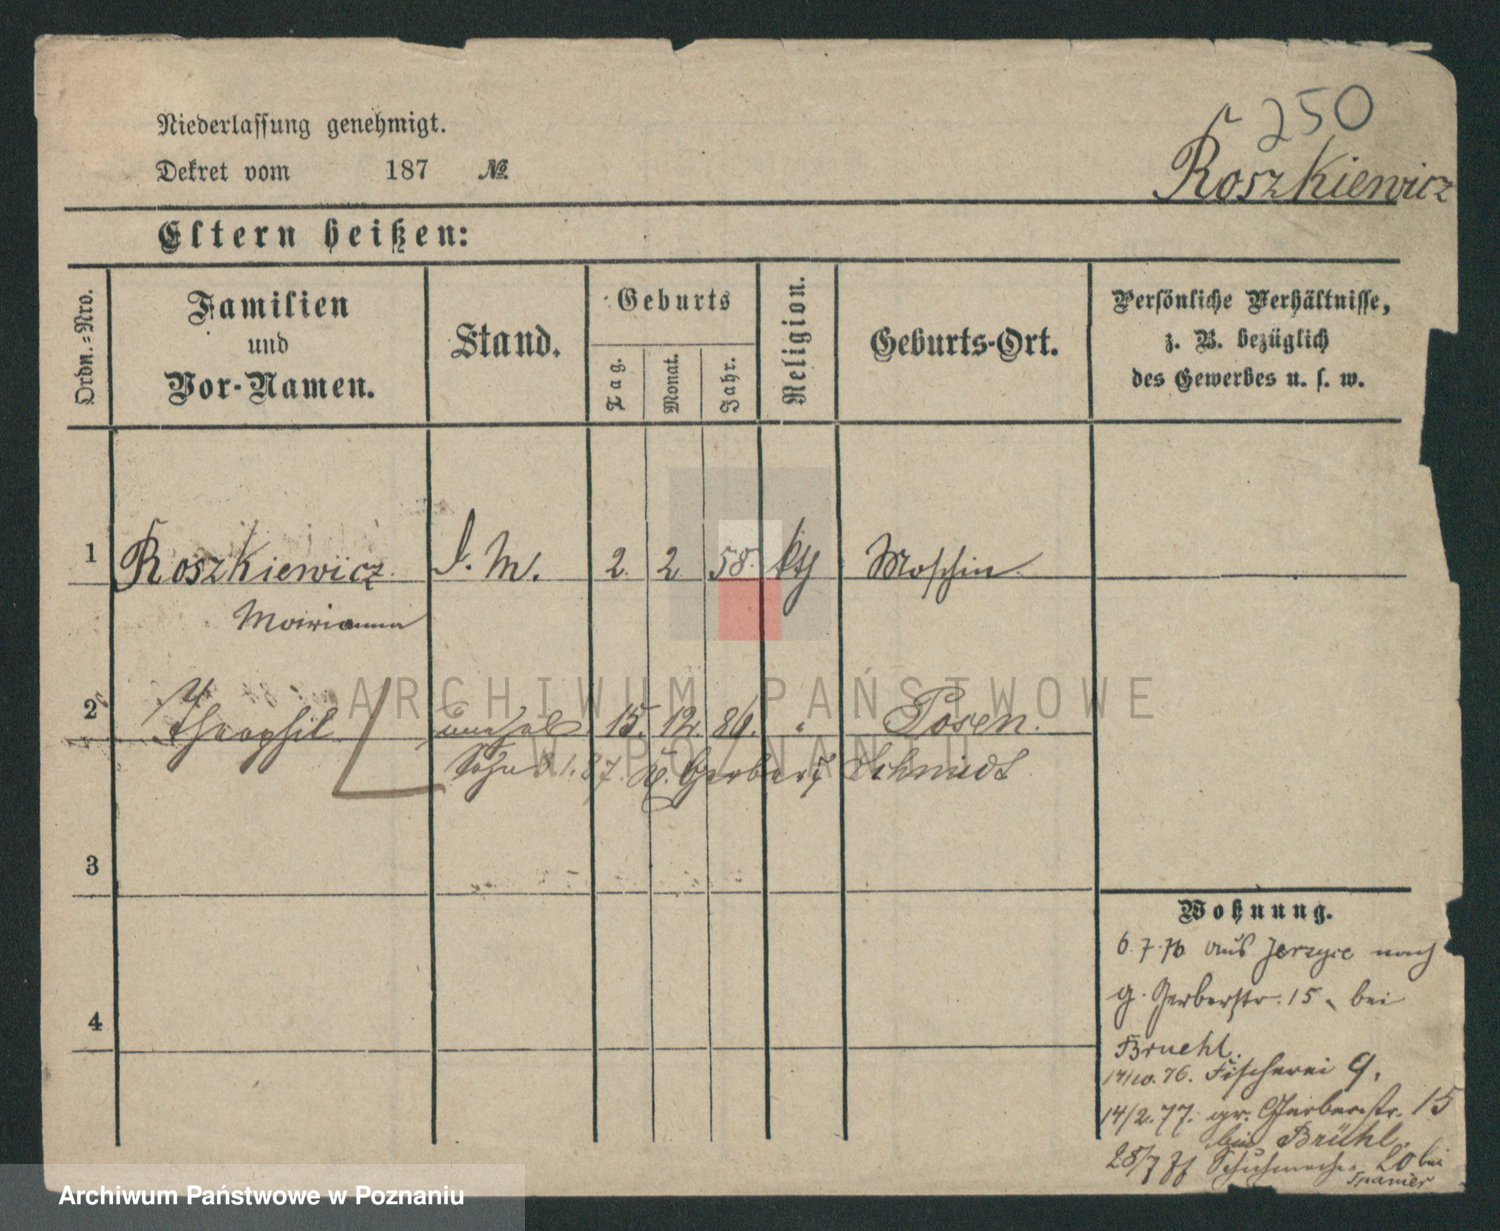 250
Roszkiewicz
Niederlassung genehmigt.
Dekret vom 187 №
Eltern heißen:
Ordn.-Nro.
Familien
und
Vor-Namen.
Stand.
Geburts
Tag.
Monat.
Jahr.
Religion.
Geburts-Ort.
Persönliche Verhältnisse,
z. B. bezüglich
des Gewerbes u. s. w.
1 Roszkiewicz D. M. 2. 2 58. kth Moschin.
Marianna
2 Theophil unehel 15. 12. 80. " Posen.
Sohn 3.1.87. Gerber Schmidt
3
4
Wohnung.
6.7.76 aus Jerzyce nach
g. Gerberstr. 15, bei
Bruehl.
14/10.76. Fischerei 9,
14/2.77. gr. Gerberstr. 15
bei Brühl.
28/7 77 Schuhmacher 20 bei
ARCHIWUM PAŃSTWOWE
W POZNANIU
Archiwum Państwowe w Poznaniu